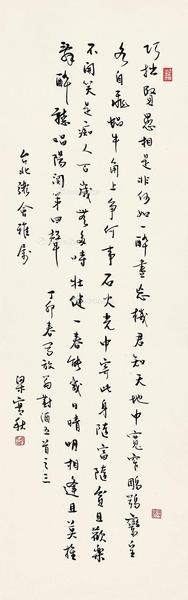 巧拙賢愚相是非何如一醉盡忘機君知天地中寬窄鵰鶚鸞皇
各自飛蝸牛角上爭何事石火光中寄此身隨富隨貧且歡樂
不開口笑是痴人百歲無多時壯健一春能幾日晴明相逢且莫推
辭醉聽唱陽關第四聲
台北會雅屬
丁卯春寫放翁對酒五首之三
梁實秋